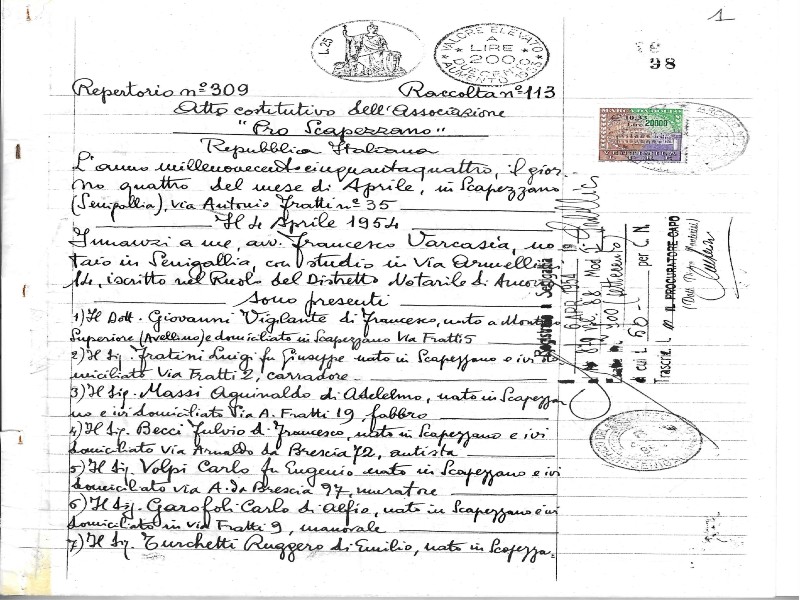 1
L. 25
VALORE ELEVATO
A
LIRE
200
DUECENTO
98
Repertorio n° 309 Raccolta n° 113
Atto costitutivo dell'Associazione
"Pro Scapezzano"
Repubblica Italiana
L'anno millenovecentocinquantaquattro, il gior-
no quattro del mese di Aprile, in Scapezzano
(Senigallia), via Antonio Fratti n° 35
Il 4 Aprile 1954
Innanzi a me, avv. Francesco Varcasia, no-
taio in Senigallia, con studio in Via Armellini
14, iscritto nel Ruolo del Distretto Notarile di Ancona
sono presenti
1) Il Dott. Giovanni Vigilante di Francesco, nato a
Superiore (Avellino) e domiciliato in Scapezzano Via Fratti 5
2) Il Sig. Fratini Luigi fu Giuseppe nato in Scapezzano e ivi do
miciliato Via Fratti 2, carradore
3) Il Sig. Massi Aguinaldo di Adelelmo, nato in Scapezza
no e ivi domiciliato Via A. Fratti 19 fabbro
4) Il Sig. Becci Fulvio di Francesco, nato in Scapezzano e ivi
domiciliato via Arnaldo da Brescia 72, autista
5) Il Sig. Volpi Carlo fu Eugenio nato in Scapezzano e ivi
domiciliato via A. da Brescia 97, muratore
6) Il Sig. Garofoli Carlo di Alfio, nato in Scapezzano e ivi
domiciliato in via Fratti 9, manovale
7) Il Sig. Turchetti Ruggero di Emilio, nato in Scapezza-
20000
Registrato a Senigallia
6 APR 1954
per C.N.
IL PROCURATORE CAPO